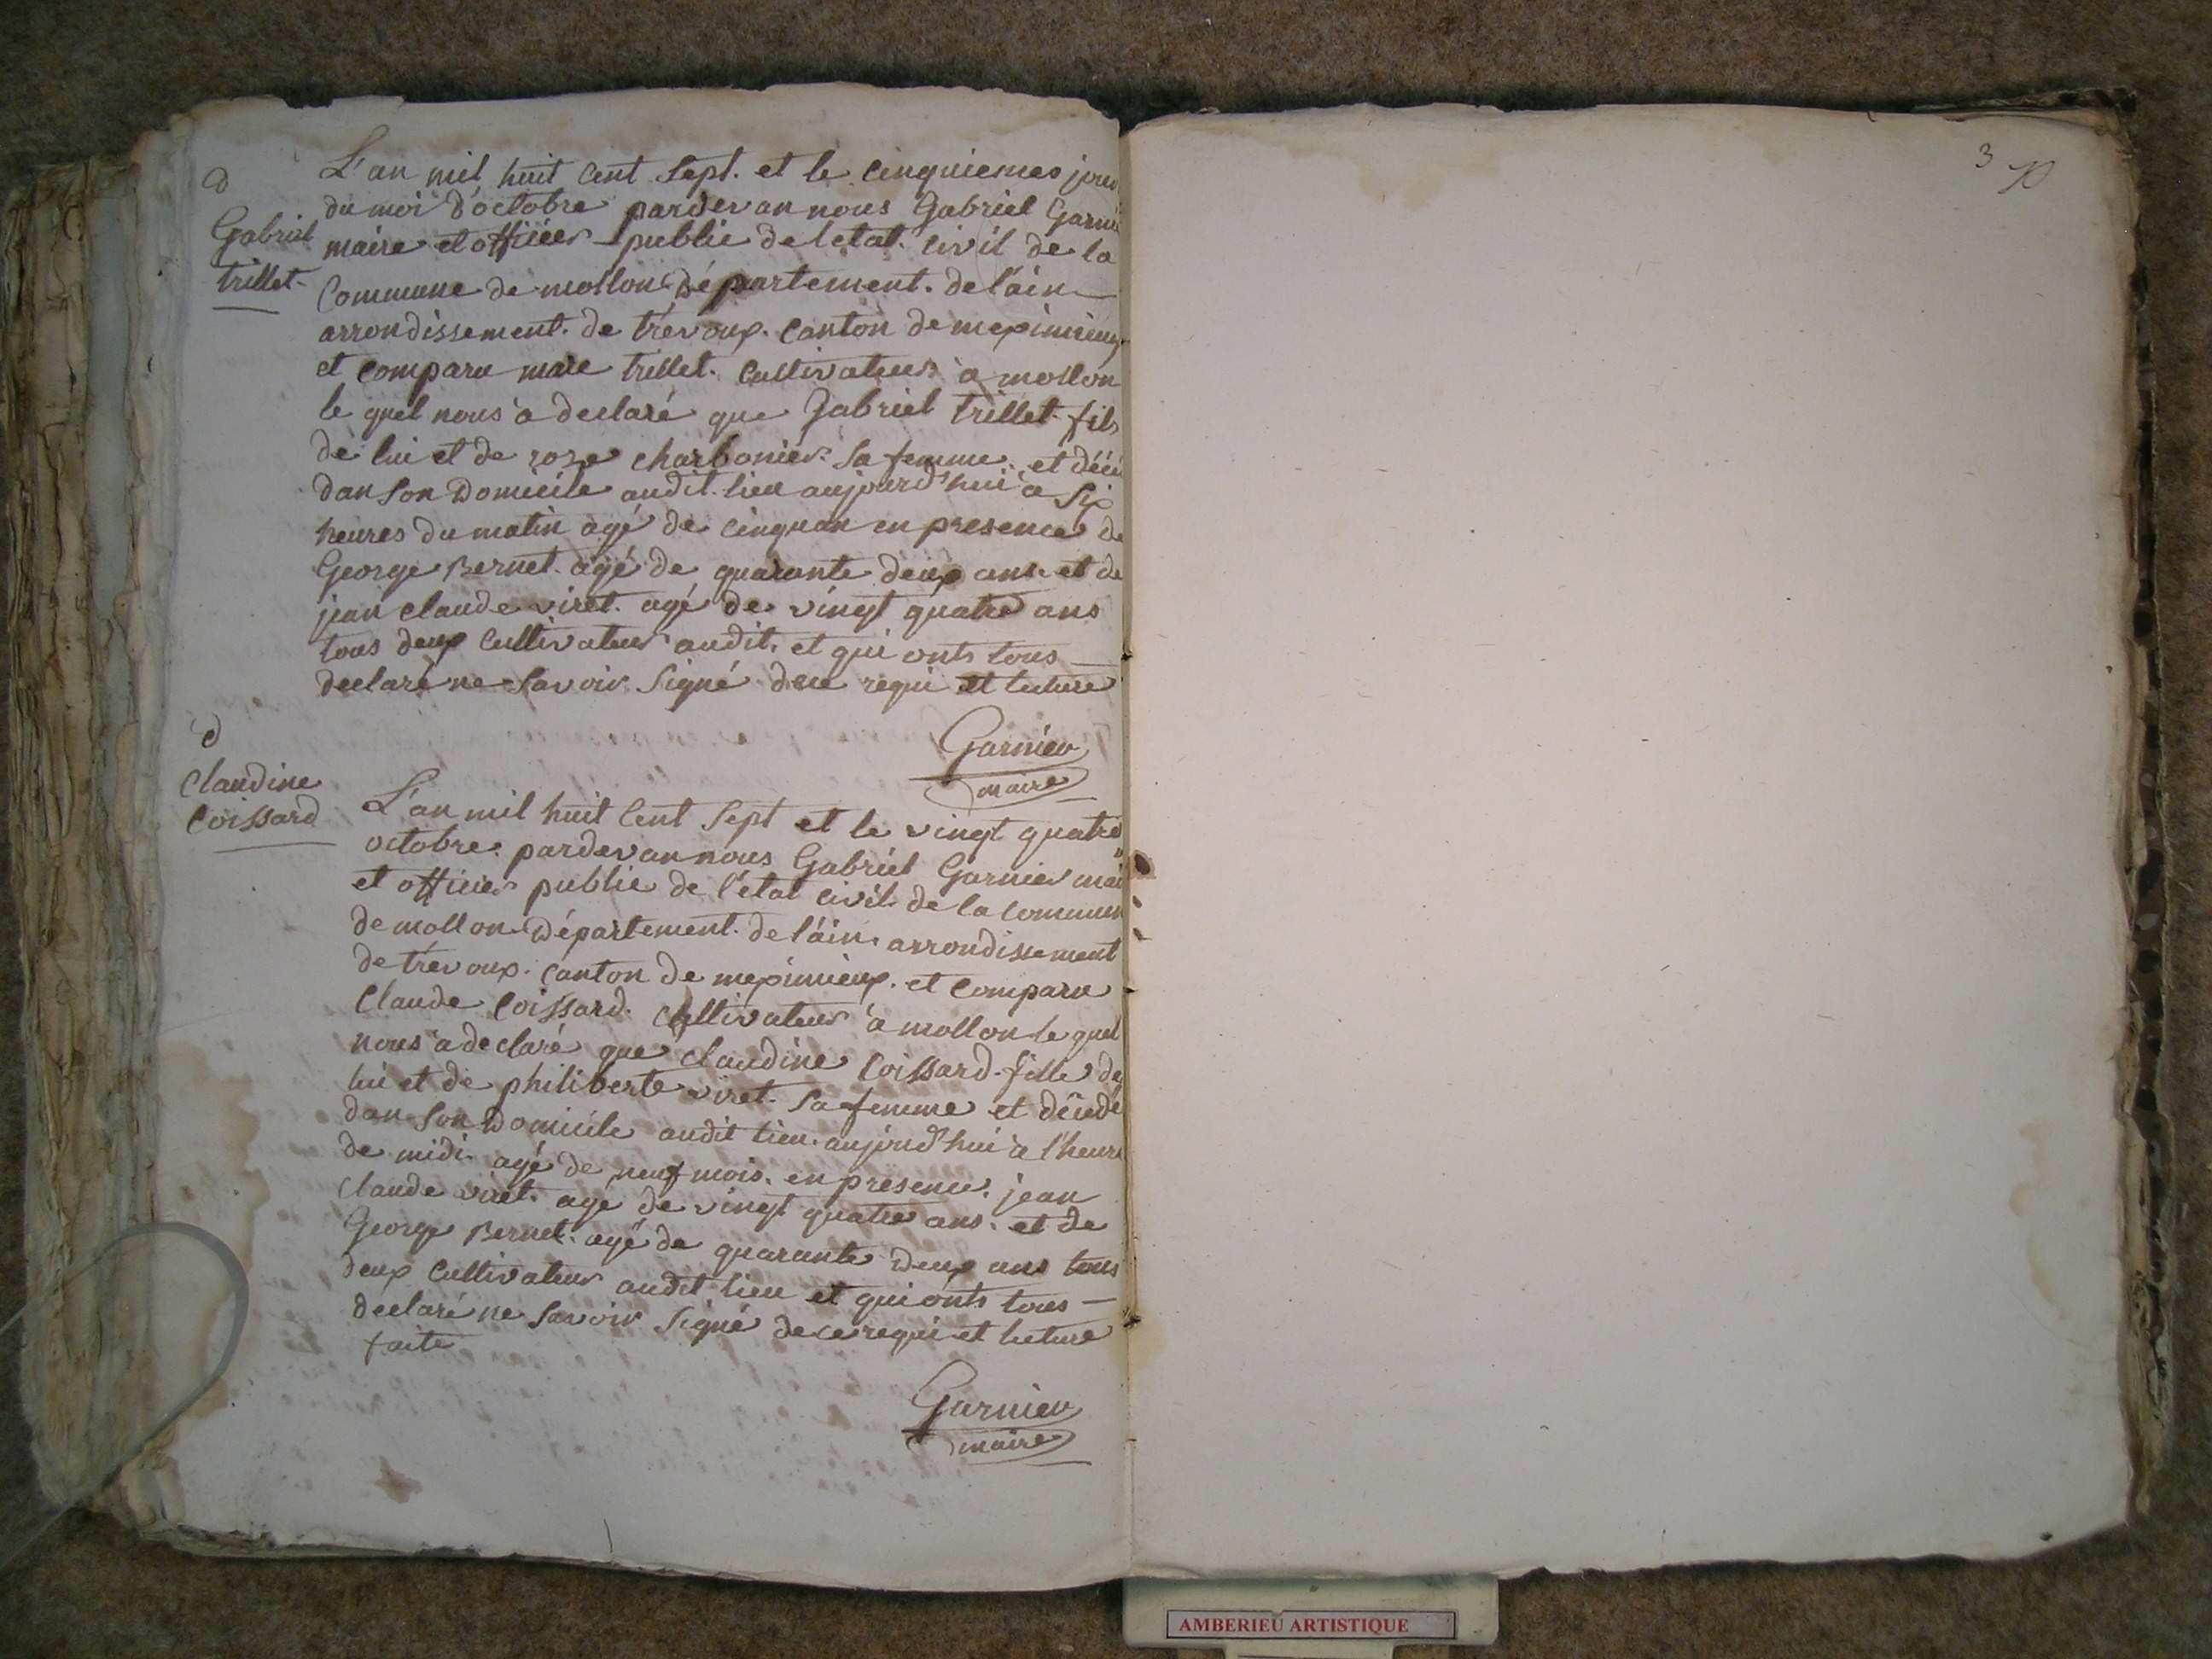 D
Gabriel
trillet
L'an mil huit Cent Sept. et le Cinquiemes jour
du moi D'octobre pardevan nous Gabriel Garni
maire et officier public de letat. civil de la
Commune de mollon Département. de l'áin
arrondissement. de trévoux. Canton de meximieux
et Comparu marie trillet. Cultivateur à mollon
le quel nous a declaré que Gabriel trillet. fils
de lui et de roze charbonier. Sa femme et décé
dan Son Domicile audit. lieu aujourd'hui à Six
heures du matin agé de Cinq an en presence de
George Bernet. agé de quarante deux ans. et de
jean Claude viret. agé de vingt quatre ans
tous deux Cultivateur audit. et qui onts tous
declaré ne Savoir Signé dece requi et lecture
Garnier
maire
D
Claudine
Coissard
L'an mil huit Cent Sept et le vingt quatre
octobre. pardevan nous Gabriel Garnier mai
et officier public de l'état civil. de la Commun
de mollon Département. de l'áin. arrondissement
de trévoux. Canton de meximieux. et Comparu
Claude Coissard. Cultivateur à mollon le quel
nous a declaré que Claudine Coissard. fille de
lui et de philiberte viret. Sa femme et décédé
dan Son Domicile audit lieu. aujourd'hui à l'heure
de midi agé de neuf mois. en presence. jean
Claude viret. agé de vingt quatre ans. et de
George Bernet. agé de quarante Deux ans tous
deux Cultivateur audit lieu et qui onts tous
déclaré ne Savoir Signé dece requi et lecture
faite
Garnier
maire
3
AMBERIEU ARTISTIQUE